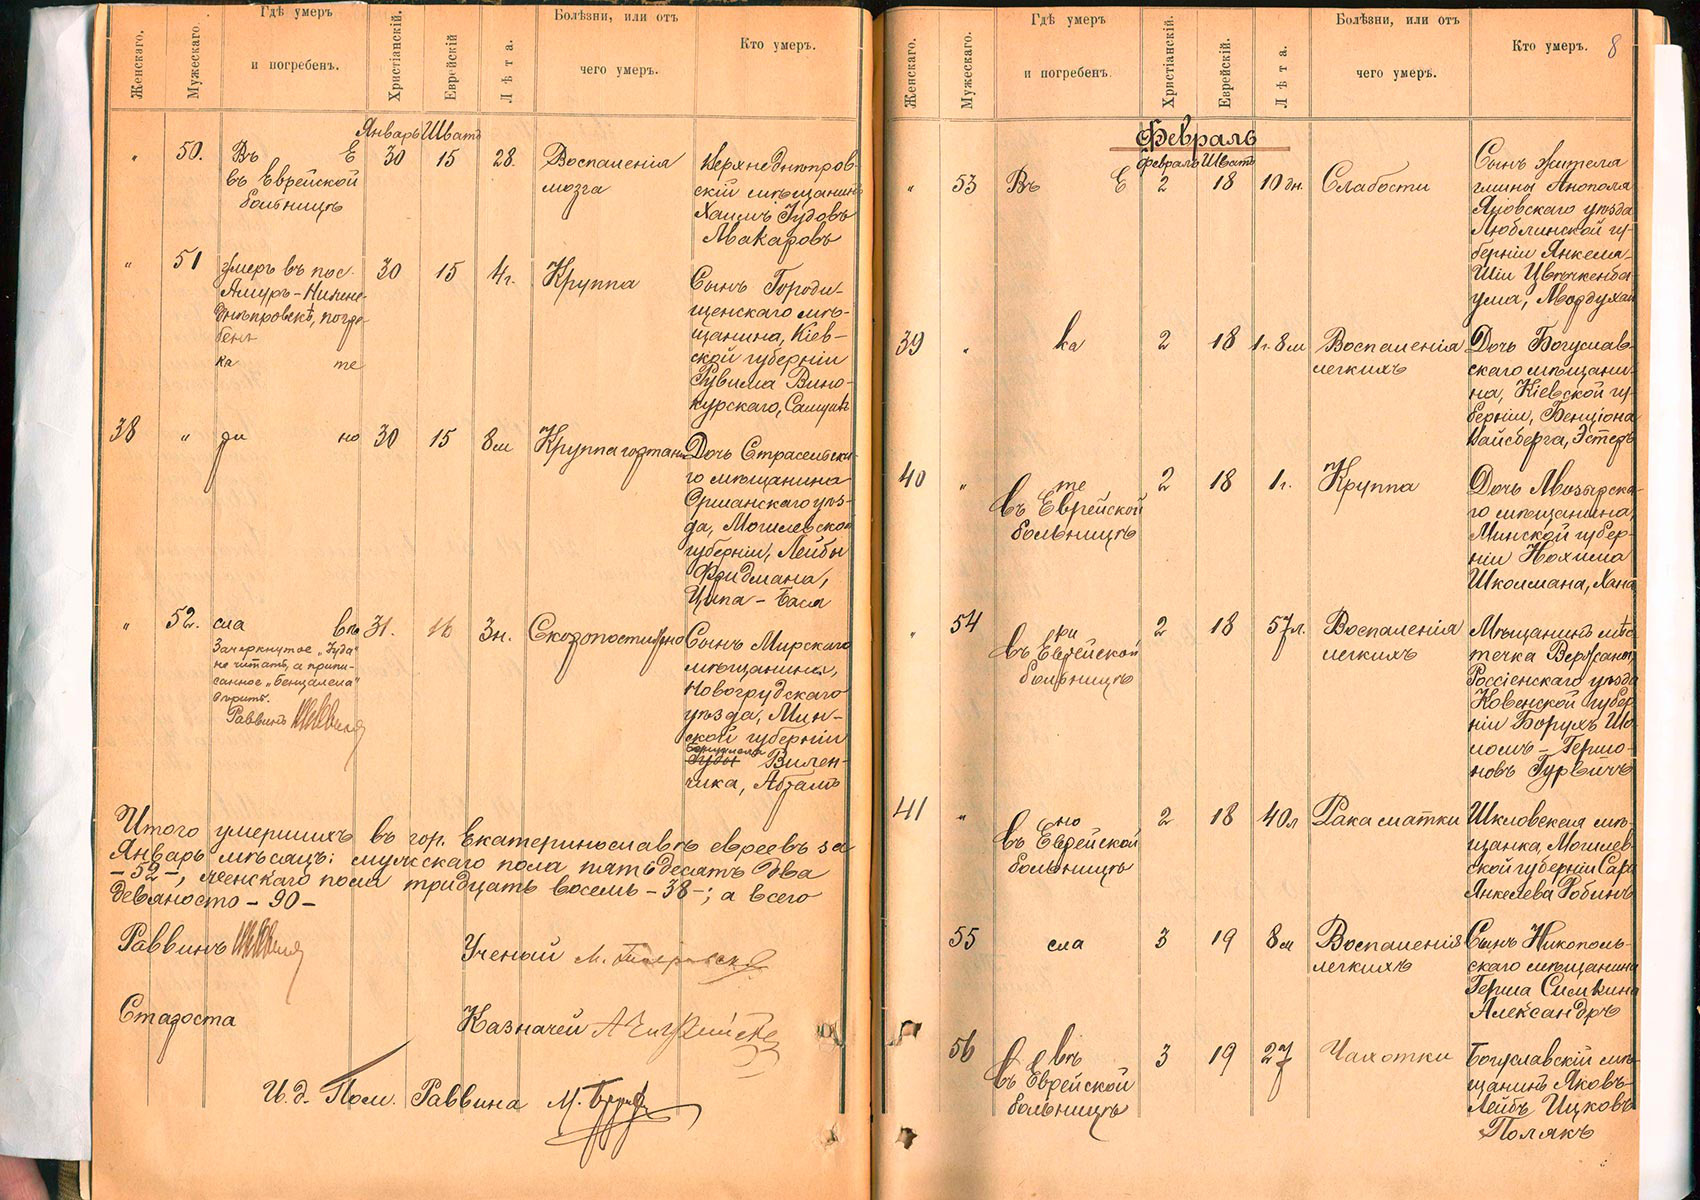 Женскаго.
Мужескаго.
Гдѣ умеръ
и погребенъ.
Христіанскій.
Еврейскій
Лѣта.
Болѣзни, или отъ
чего умеръ.
Кто умеръ.
Январь Шватъ
" 50. Въ Е 30 15 28. Воспаленія
въ Еврейской
больницѣ
мозга
Верхнеднѣпров-
скій мѣщанинъ
Хаимъ Іудовъ
Макаровъ
" 51 Умеръ въ пос. 30 15 4г. Круппа
Амуръ-Нижне-
днѣпровскѣ, погре-
бенъ
ка те
Сынъ Городи-
щенскаго мѣ-
щанина, Кіев-
ской губерніи
Рувима Вино-
курскаго, Самуилъ
38 " ри но 30 15 8м Круппа гортани
Дочь Страсельска-
го мѣщанина
Оршанскаго уѣз-
да, Могилевской
губерніи, Лейбы
Фридмана,
Ципа-Бася
" 52. сла въ 31. 16 3н. Скоропостижно
Зачеркнутое „Іуда"
не читать, а припи-
санное „Бенцалела"
вѣрить.
Раввинъ
Сынъ Мирскаго
мѣщанина,
Новогрудскаго
уѣзда, Мин-
ской губерніи
Бенцалела
Іуды Вилен-
чика, Абрамъ
Итого умершихъ въ гор. Екатеринославѣ евреевъ за
Январь мѣсяцъ: мужскаго пола пятьдесятъ два
-52-, женскаго пола тридцать восемь -38-; а всего
девяносто -90-
Раввинъ
Ученый
Староста
Казначей
И.д. Пом. Раввина М.
Женскаго.
Мужескаго.
Гдѣ умеръ
и погребенъ
Христіанскій.
Еврейскій.
Лѣта.
Болѣзни, или отъ
чего умеръ.
Кто умеръ.
8
Февраль
февраль Шватъ
" 53 Въ Е 2 18 10 дн. Слабости
Сынъ жителя
гмины Анополя
Яновскаго уѣзда
Люблинской гу-
берніи Янкеля-
Шіи Цвѣчкенба-
ума, Мордухай
39 " ка 2 18 1г. 8м Воспаленія
легкихъ
Дочь Богуслав-
скаго мѣщани-
на, Кіевской гу-
берніи, Бенціона
Вайсберга, Эстеръ
40 " те 2 18 1г. Круппа
въ Еврейской
больницѣ
Дочь Мозырска-
го мѣщанина,
Минской губер-
ніи Нохима
Школмана, Хана
" 54 ри 2 18 57л. Воспаленія
въ Еврейской
больницѣ
легкихъ
Мѣщанинъ мѣс-
течка
Россіенскаго уѣзда
Ковенской губер-
ніи Борухъ Шо-
ломъ-Гершо-
новъ Гурвичъ
41 " но 2 18 40л Рака матки
въ Еврейской
больницѣ
Шкловская мѣ-
щанка, Могилев-
ской губерніи Сара
Янкелева Робинъ
55 сла 3 19 8м Воспаленія
легкихъ
Сынъ Никополь-
скаго мѣщанина
Герша Симкина
Александръ
56 въ 3 19 27 Чахотки
въ Еврейской
больницѣ
Богуславскій мѣ-
щанинъ Яковъ-
Лейбъ Ицковъ
Полякъ